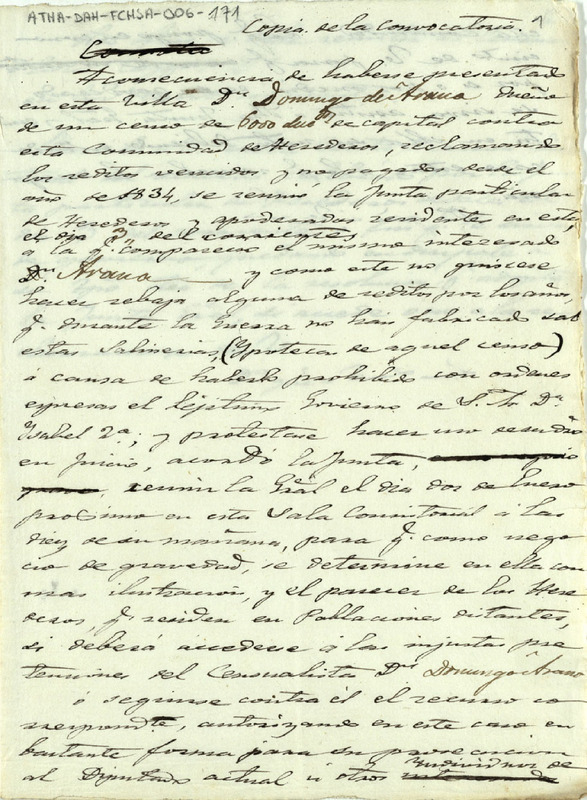 ATHA-DAH-FCMSA-006-171
Copia de la Convocatoria. 1
A consecuencia de haberse presentado
en esta Villa Dn Domingo de Arana dueño
de un censo de 6000 duos de capital contra
esta Comunidad de Herederos, reclamando
los reditos vencidos y no pagados desde el
año de 1834, se reunió la Junta particular
de Herederos y apoderados residentes en esta,
el dia 3 del corriente
a la q.e compareció el mismo interesado
Dn Arana y como este no quisiese
hacer rebaja alguna de reditos por los años,
q.e durante la Guerra no han fabricado sal
estas Salineras, (Ypoteca de aquel censo)
á causa de haberlo prohibido con ordenes
espresas el lejitimo Govierno de S. M. Da
Ysabel 2a; y protestase hacer uso de su dro
en Juicio, acordó la Junta,
reunir la Gral el dia dos de Enero
procsimo en esta Sala Consistorial a las
diez de su mañana, para q.e como nego
cio de gravedad, se determine en ella con
mas ilustracion, y el parecer de los Here
deros, q.e residen en Poblaciones distantes,
si deberá accederse á las injustas pre
tensiones del Censualista Dn Domingo Arana
ó seguirse contra él el recurso co
rrespondte, autorizando en este caso en
bastante forma para su prosecucion
al Diputado actual ú otros Yndividuos de